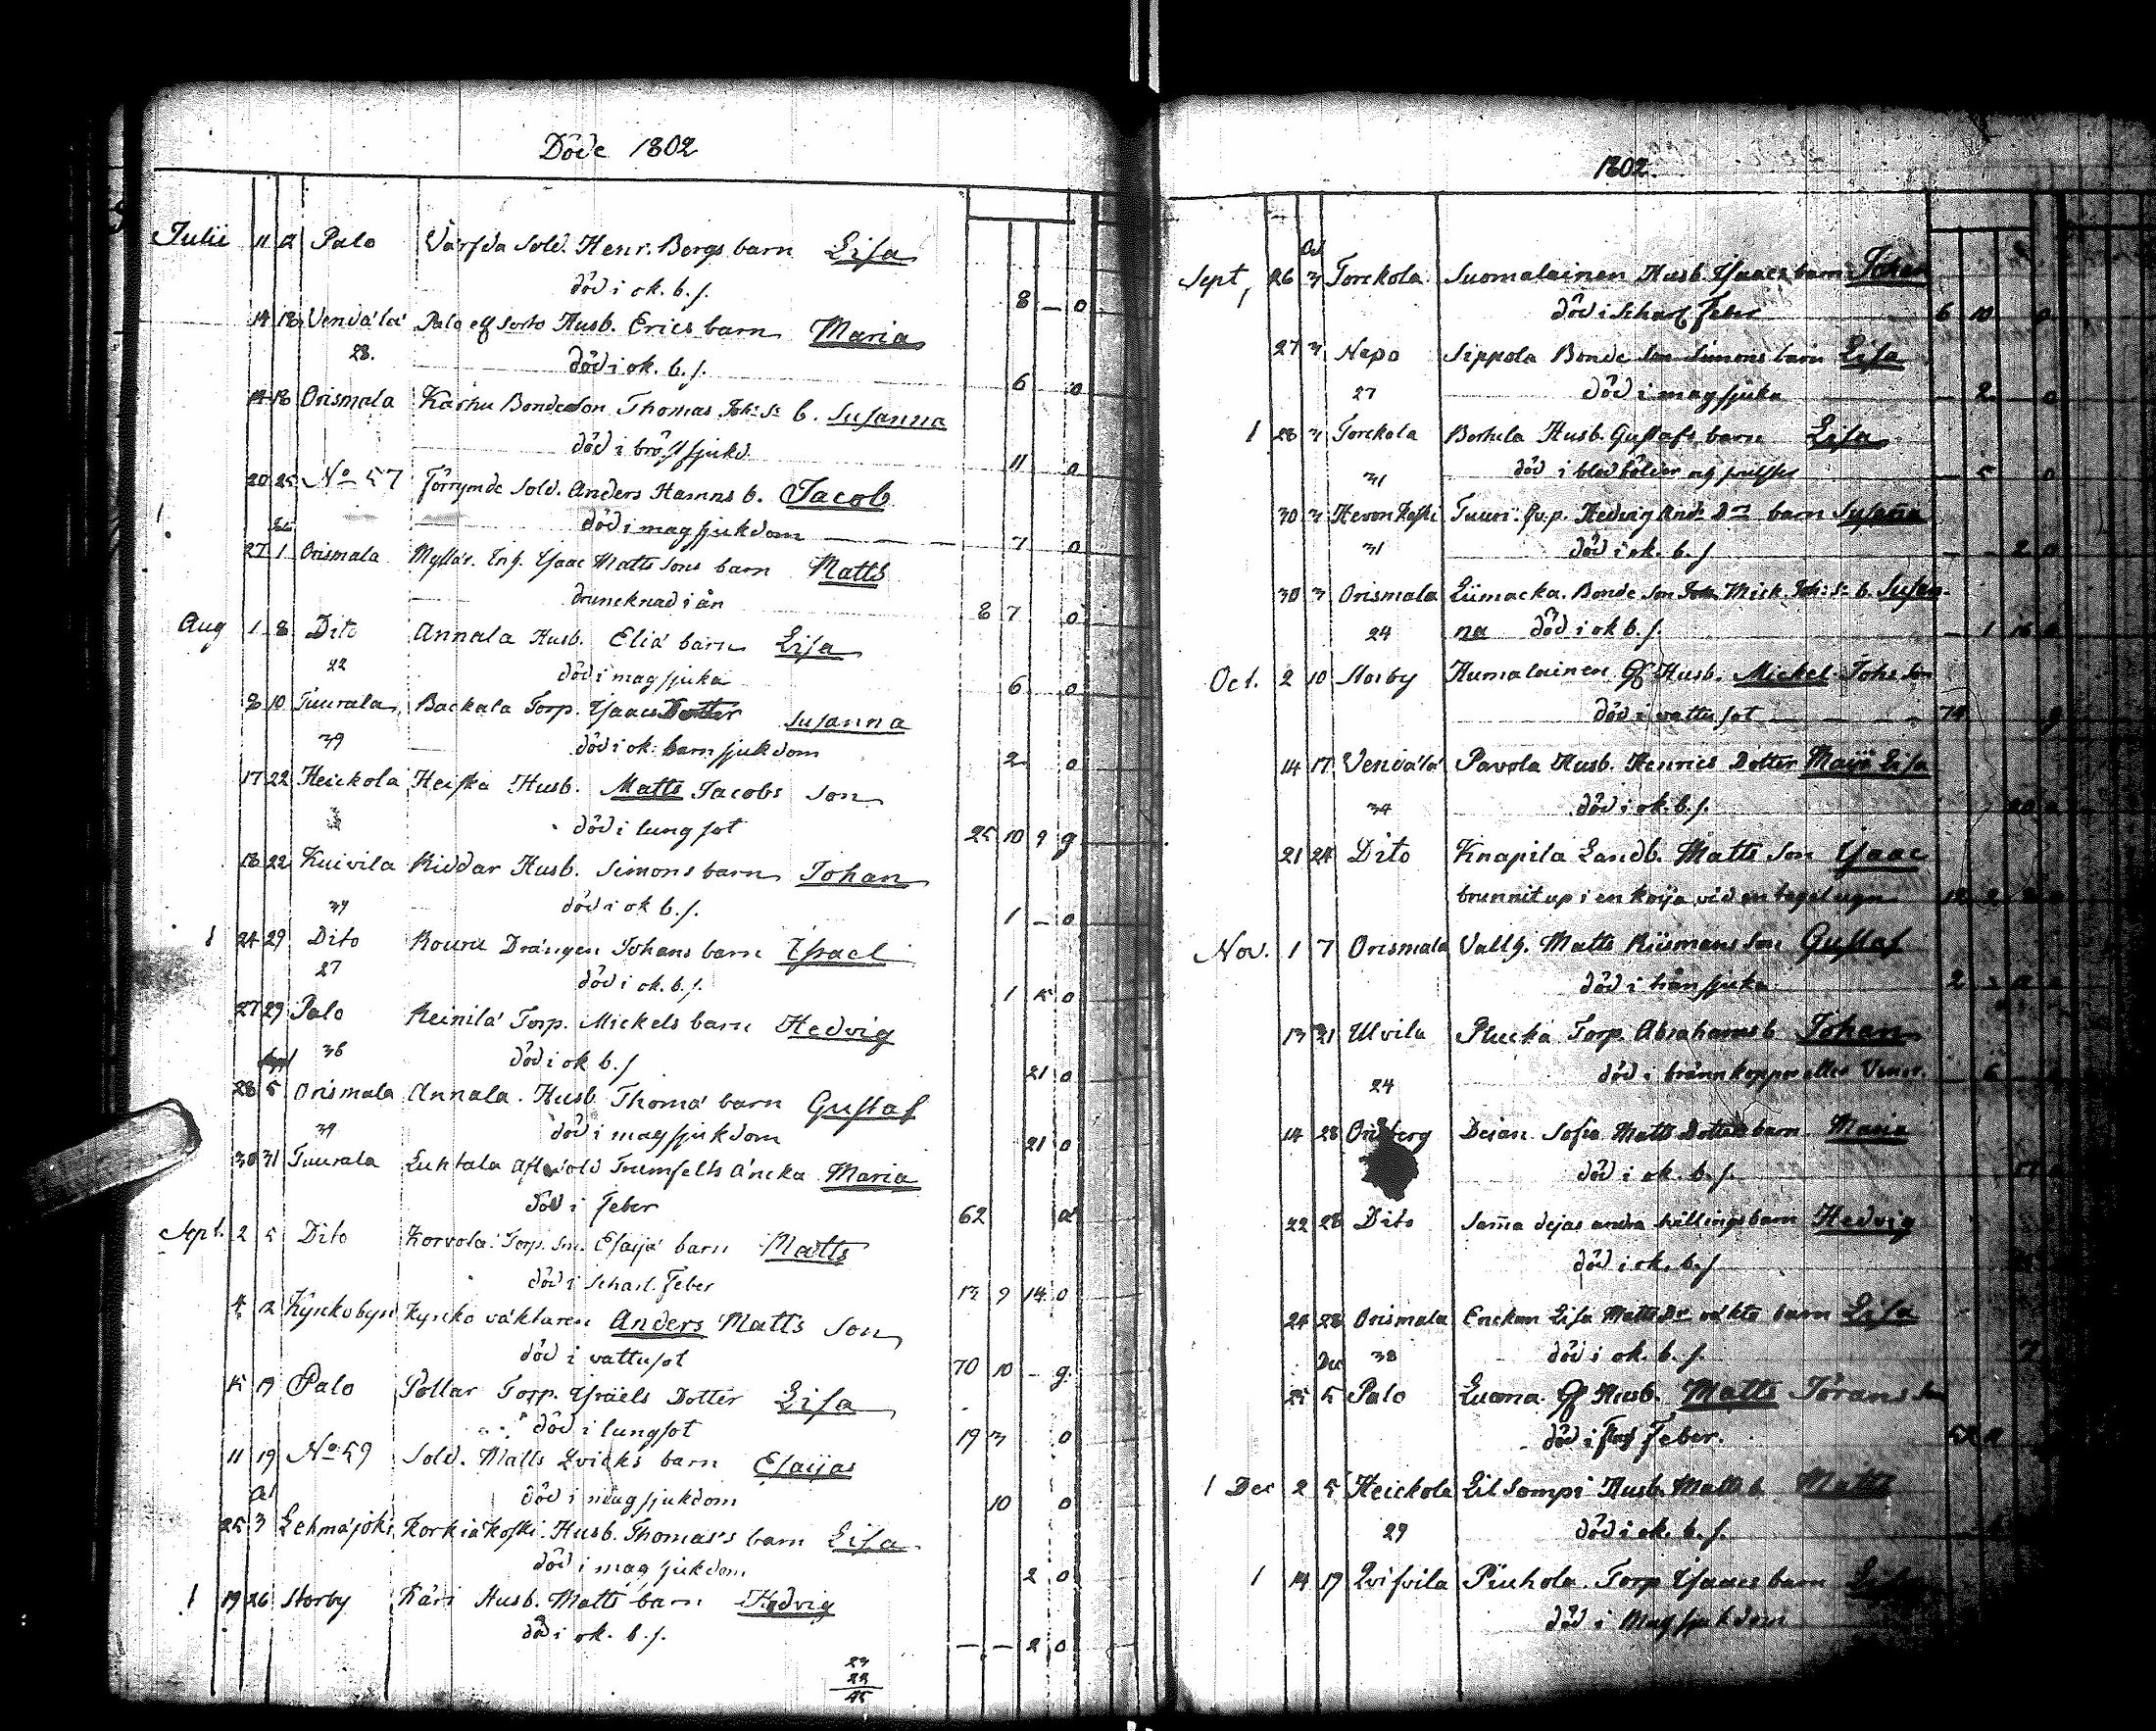 Döde 1802
Julii 11 12 Palo Värfda Sold. Henr. Borgs barn Lisa
död i ok. b. s. 8 – 0
14 18 Vendälä Palo Husb. Erics barn Maria
28. död i ok. b. s. 6 0
14 18 Orismala Karhu Bondeson Thomas Joh: S: b. Susanna
död i bröstsjukd. 11 0
20 25 No 57 Förrymde Sold. Anders Hamns b. Jacob
död i magsjukdom 7 0
27 1 Orismala Isaac Matts Sons barn Matts
druncknad i ån 8 7 0
Aug 1 8 Dito Annala Husb. Eliä barn Lisa
22 död i magsjuka 6 0
8 10 Tuurala Backala Torp. Isaacs Dotter Susanna
39 död i ok: barnsjukdom 2 0
17 22 Heickola Heiska Husb. Matts Jacobs Son
död i lungsot 25 10 9 g
18 22 Kuivila Riddar Husb. Simons barn Johan
39 död i ok b. s. 1 – 0
1 24 29 Dito Rouru Drängen Johans barn Israel
27 död i ok. b. s. 1 15 0
27 29 Palo Reinilä Torp. Mickels barn Hedvig
36 död i ok b. s. 21 0
28 5 Orismala Annala Husb Thomä barn Gustaf
39 död i magsjukdom 21 0
30 31 Tuurala Luhtala Trumfelts Äncka Maria
död i Feber 62
Sept. 2 5 Dito Korvola Torp. Sn. Esaijä barn Matts
död i Scharl. Feber 13 9 14 0
4 12 Kyrkobyn Kyrko väktaren Anders Matts Son
död i vattusot 70 10 – g.
15 19 Palo Pollar Torp. Israels Dotter Lisa
död i lungsot 19 3 0
11 19 No 59 Sold. Matts Qvicks barn Esaijas
död i magsjukdom 10 0
25 3 Lehmäjoki Korkiakoski Husb. Thomas's barn Lisa
död i mag sjukdom 2 0
1 19 26 Storby Käri Husb. Matts barn Hedvig
död i ok. b. s. – – 2 0
23
22
45
1802.
Sept, 26 3 Torckola Suomalainen Husb. Isaacs barn Johan
död i Scharl Feber 6 10 0
27 3 Napo Sippola Bonde Son Simons barn Lisa
27 död i magsjuka – 2 0
1 28 3 Torckola Husb. Gustafs barn Lisa
31 död i – 5 0
30 3 Hevonkoski Tuuri Hedvig And: Dr barn Susanna
31 död i ok. b. s. – – 2 0
30 3 Orismala Liimacka Bonde Son Mick. Joh: S: b. Susan-
24 na död i ok b. s. – 1 16 0
Oct. 2 10 Storby Humalainen Gf Husb. Mickel Johs Son
död i vattusot 74 g
14 17 Vendälä Pavola Husb. Henrics Dotter Maija Lisa
34 död i ok. b. s.
21 24 Dito Knapila Landb. Matts Son Isaac
brunnit up i en koija vid en tegelugn 12 2
Nov. 1 7 Orismala Vallg. Matts Riismans Son Gustaf
död i 2
13 21 Ulvila Plucka Torp. Abrahams b Johan
24 död i brännkoppor eller Vener. – 6
14 28 Orisberg Dejan Sofia Matts Dotters barn Maria
död i ok. b. s. 17
22 28 Dito Samma dejas andra tvillingsbarn Hedvig
död i ok. b. s.
24 28 Orismala Enckan Lisa Matts Dr oäkta barn Lisa
38 död i ok. b. s. 7
Dec
25 5 Palo Luoma Gf Husb. Matts Jörans Son
död i Feber.
1 Dec 2 5 Heickola Lil Sompi Husb. Matts b Matts
29 död i ok. b. s.
1 14 19 Qvifvila Piuhola Torp Isaacs barn
död i Magsjukdom